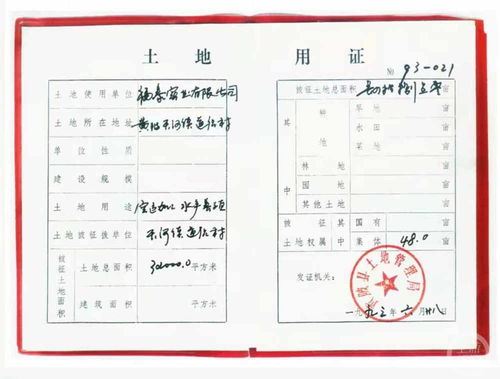 土地 用证
№ 93-021
土地使用单位 福泰实业有限公司
土地所在地址 黄陂天河镇道店村
单位性质
建设规模
土地用途
土地被征拨单位 天河镇道店村
被征土地面积
土地总面积 32000.0 平方米
建筑面积 平方米
被征土地总面积 亩
其中
种地
旱地 亩
水田 亩
菜地 亩
林地 亩
园地 亩
其他土地 亩
被征其 国有 亩
土地权属中 集体 48.0 亩
发证机关:
黄陂县土地管理局
一九九三年六月廿八日